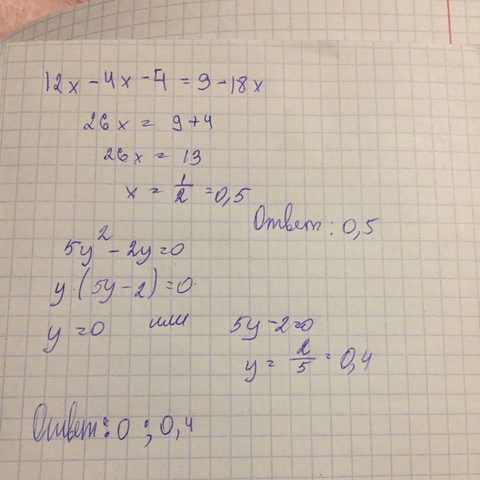 12x - 4x - 4 = 9 - 18x
26x = 9 + 4
26x = 13
x = 1/2 = 0,5
Ответ: 0,5
5y² - 2y = 0
y (5y - 2) = 0
y = 0 или 5y - 2 = 0
y = 2/5 = 0,4
Ответ: 0 ; 0,4